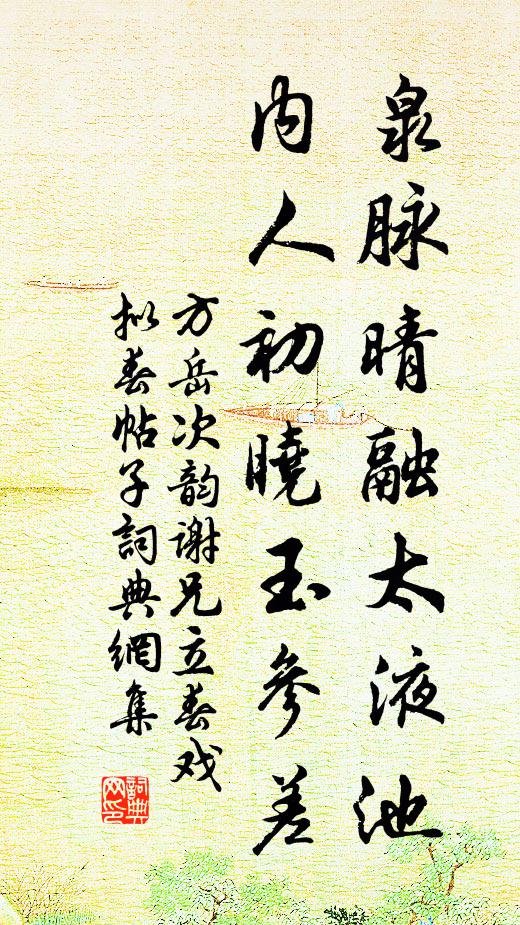 泉脉晴融太液池
内人初曉玉參差
方岳次韵谢兄立春戏
拟春帖子詞典網集
詞典网印